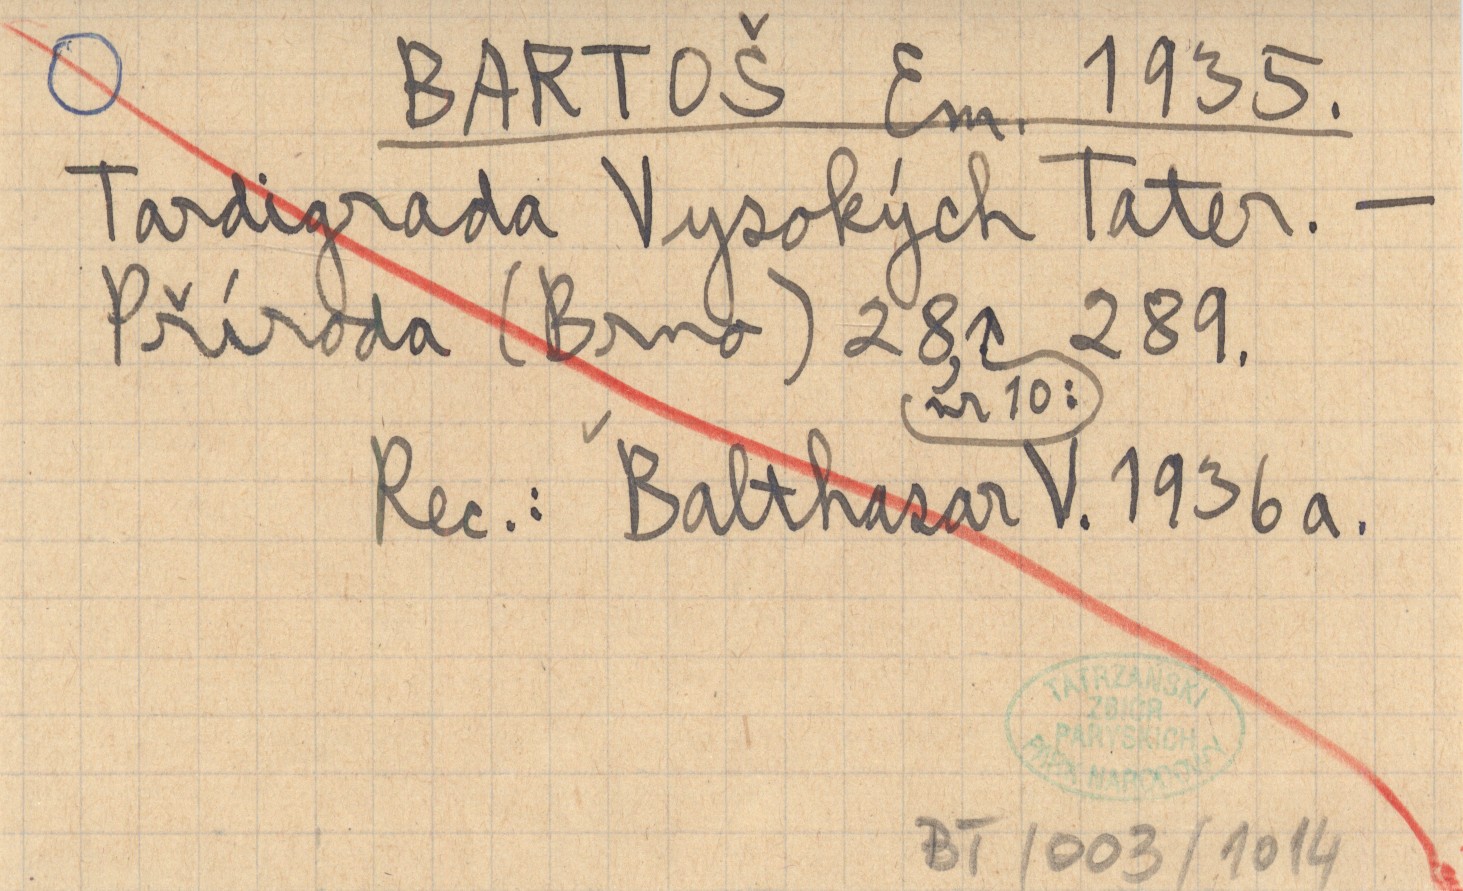 BARTOŠ Em. 1935.
Tardigrada Vysokých Tater. —
Příroda (Brno) 28, 289.
nr 10:
Rec.: Balthasar V. 1936a.
TATRZAŃSKI
ZBIÓR
PARYSKICH
PARK NARODOWY
BT/003/1014